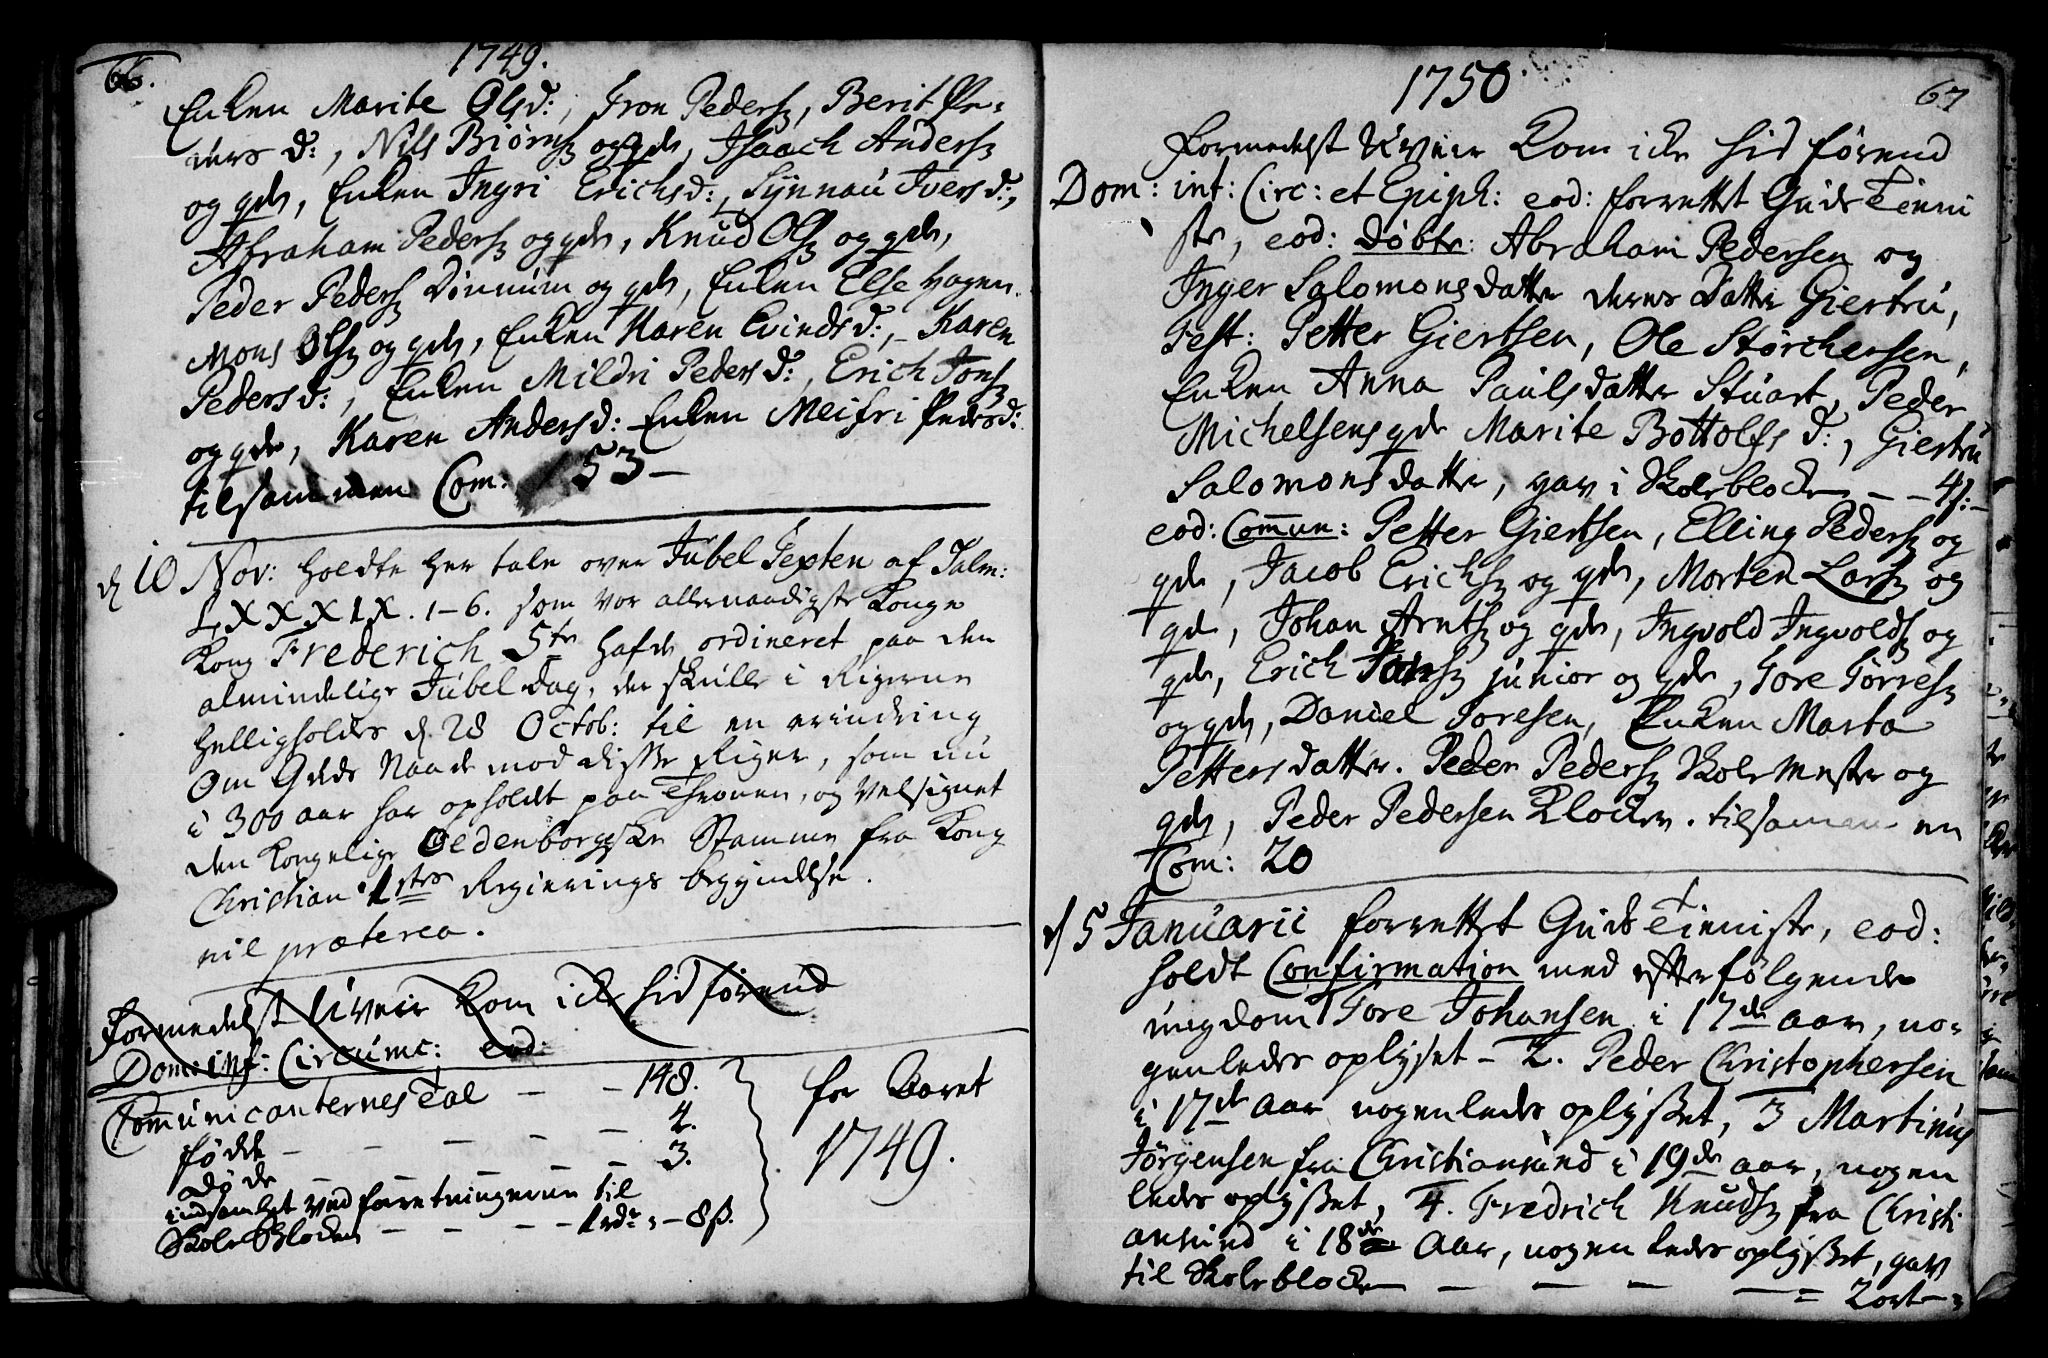 66.
1749.
Enken Marite Olsd:, Iron Peders, Berit Pe=
ders d:, Nils Biørns og qde, Isaach Anders
og qde, Enken Ingri Erichsd:, Synnau Iversd:,
Abraham Peders og qde, Knud Ols og qde,
Peder Peders Dønnum og qde, Enken Else Hagen
Mons Ols og qde, Enken Karen Evindsd:, Karen
Pedersd:, Enken Mildri Pedersd:, Erich Jons
og qde, Karen Andersd: Enken Meifri Pedersd:
tilsammen Com: 53 -
d 10 Nov: holdte her tale over Jubel Texten af Salm:
LXXXIX. 1-6. som vor allernaadigste Konge
Kong Frederich 5te hafde ordineret paa den
almindelige Jubel Dag, der skulle i Rigerne
helligholdes d. 28 Octob: til en erindring
Om Guds Naade mod disse Riger, som nu
i 300 aar har opholdt paa Thronen, og Velsignet
den Kongelige Oldenborgske Stamme fra Kong
Christian 1stes Regierings begyndelse.
nil præterea.
Formedelst Uveir kom icke hid førend
Dom: int: Circumc: eod:
Communicanternes Tal - - 148.
fødde - - - - - 4.
døde - - - - 3.
indsamlet ved forretningerne til
Skole Blocken - - - - 1 rdr: - 8 ß.
for Aaret
1749.
1750
67
Formedelst Uveir kom icke hid førend
Dom: int: Circ: et Epiph: eod: forrettet Guds Tieni
ste, eod: døbte: Abraham Pedersen og
Inger Salomonsdatter deres Datter Giertru,
Test: Petter Giertsen, Ole Størchersen,
Enken Anna Paulsdatter Stuart, Peder
Michelsens qde Marite Bottolfs d:, Giertru
Salomonsdatter, gav i Skoleblocken - - 4ß: -
eod: Commun: Petter Giertsen, Elling Peders og
qde, Jacob Erichs og qde, Morten Lars og
qde, Johan Arnts og qde, Ingvold Ingvolds og
qde, Erich Jons junior og qde, Tore Tørres
og qde, Daniel Toresen, Enken Marta
Pettersdatter. Peder Peders Skole Mester og
qde, Peder Pedersen Klocker. tilsammen
Com: 20
d 5 Januarii forrettet Guds Tieniste, eod:
holdt Confirmation med efterfølgende
ungdom 1 Tore Johansen i 17de aar, no=
genledes oplyset - 2. Peder Christophersen
i 17de aar nogenledes oplysset, 3 Martinus
Jørgensen fra Christiansund i 19de aar, nogen
ledes oplysset, 4. Fredrich Knuds fra Christi
ansund i 18de Aar, nogen ledes oplysset, gav
til Skoleblocken - - - - = 2 ort - ;